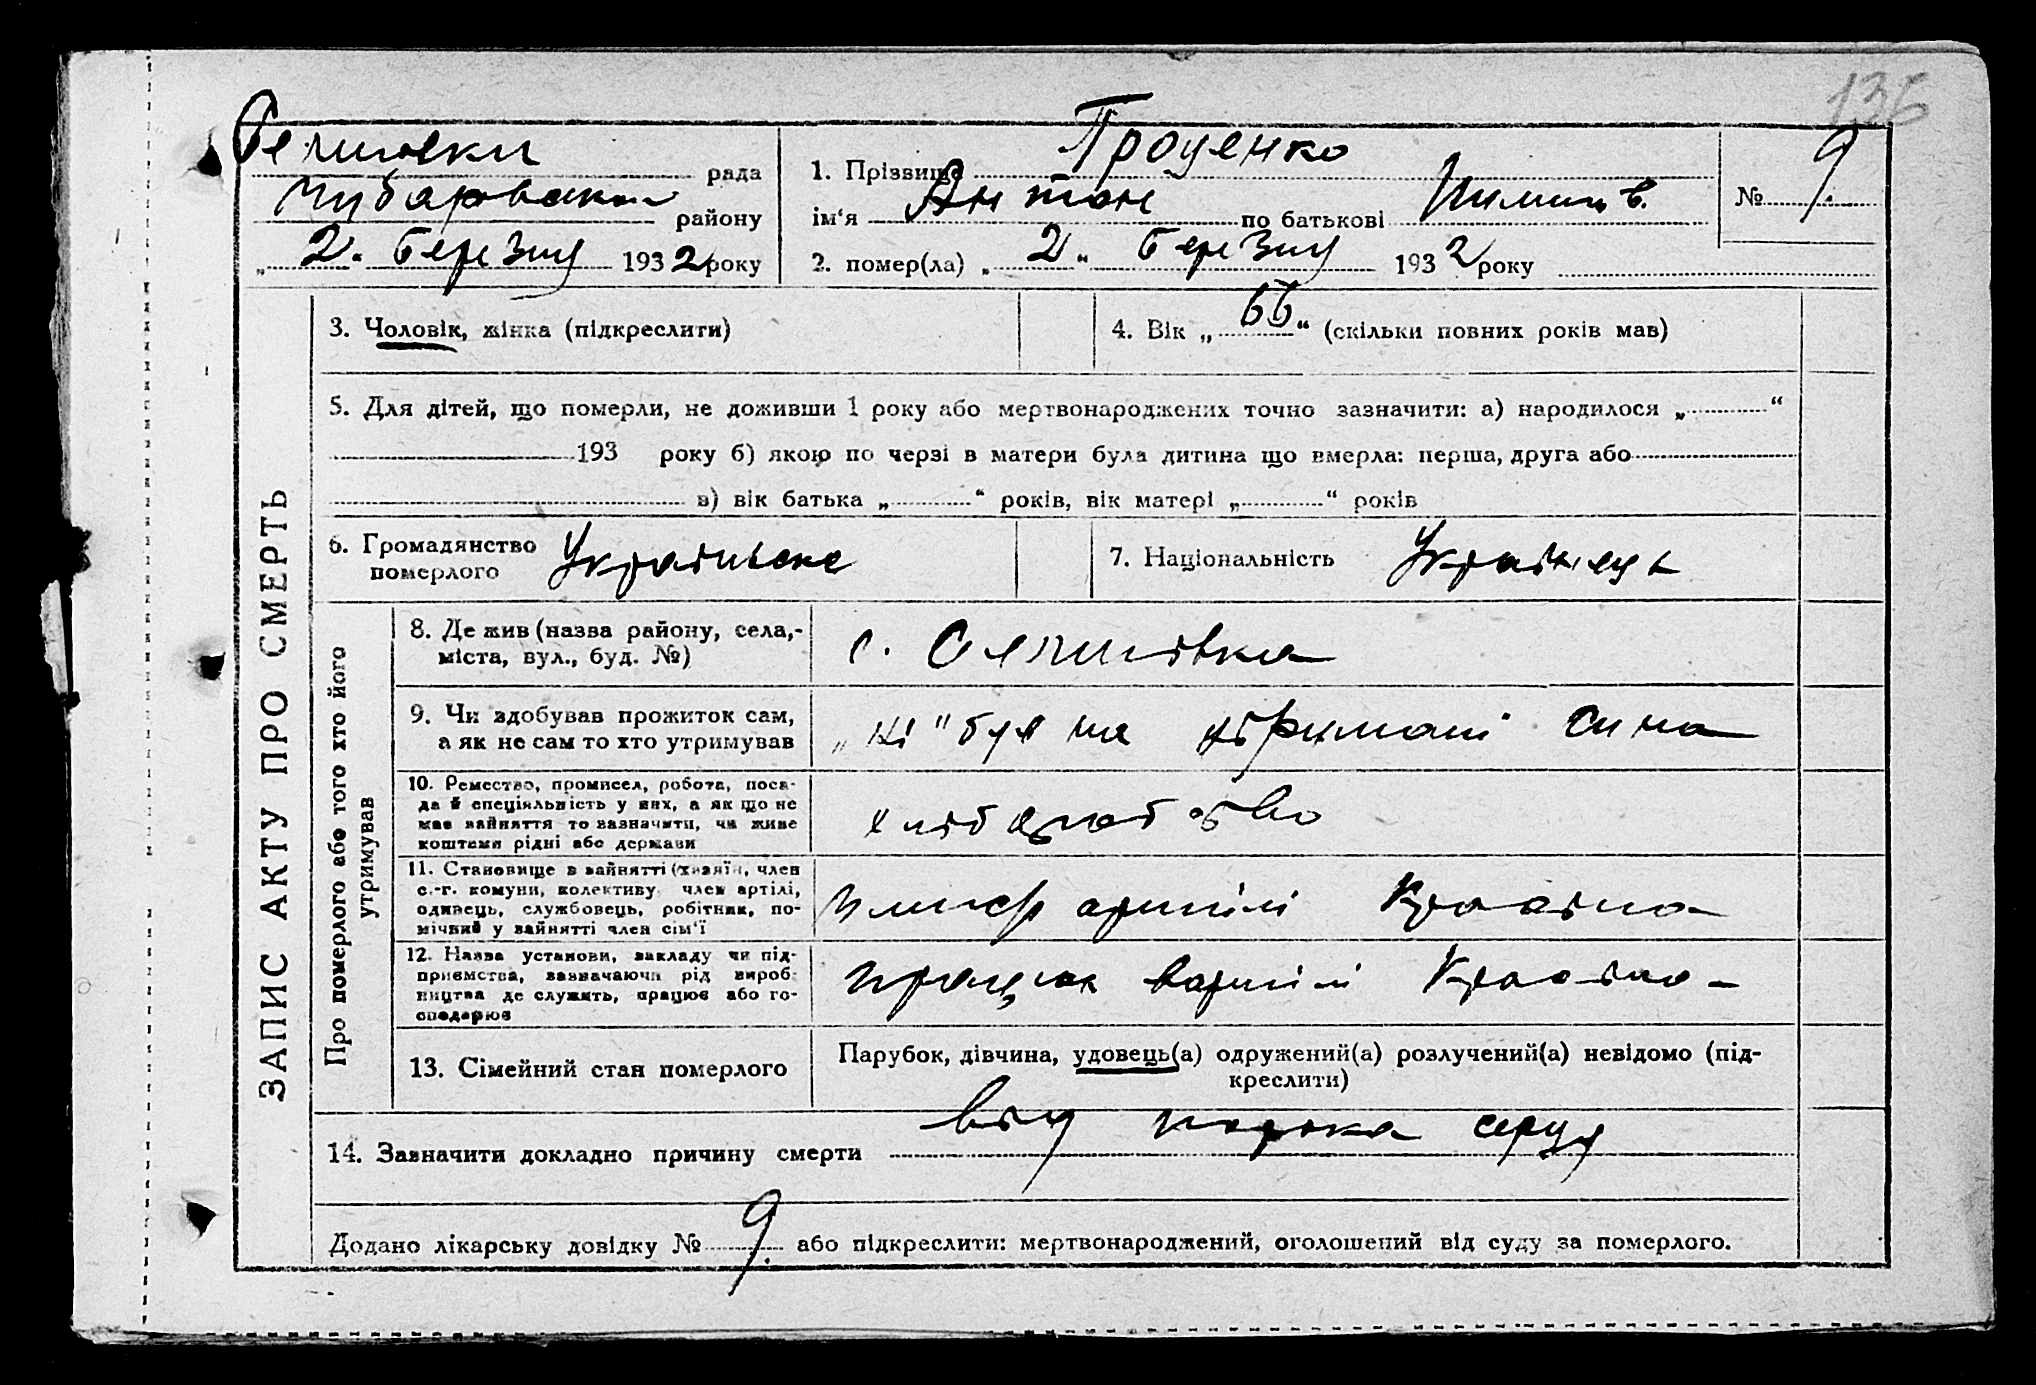 136
рада
Чубарвськ району
„ 2. березня 1932 року
1. Прізвище Проценко
ім‘я Антон по батькові
2. помер(ла) „ 2 “ березня 1932 року
№ 9.
ЗАПИС АКТУ ПРО СМЕРТЬ
3. Чоловік, жінка (підкреслити)
4. Вік „ 66 “ (скільки повних років мав)
5. Для дітей, що померли, не доживши 1 року або мертвонароджених точно зазначити: а) народилося „ “
193 року б) якою по черзі в матери була дитина що вмерла: перша, друга або
в) вік батька „ “ років, вік матері „ “ років
6. Громадянство
померлого Українське
7. Національність Українець
Про померлого або того хто його
утримував
8. Де жив (назва району, села,-
міста, вул., буд. №)
с.
9. Чи здобував прожиток сам,
а як не сам то хто утримував
„ні“ був на утримані сина
10. Ремество, промисел, робота, поса-
да й спеціяльність у них, а як що не
має зайняття то зазначити, чи живе
коштеми рідні або держави
хліборобство
11. Становище в зайнятті (хазяїн, член
с.-г. комуни, колективу член артілі,
одинець, службовець, робітник, по-
мічний у зайнятті член сім‘ї
член артілі
12. Назва установи, закладу чи під-
приємства, зазначаючи рід вироб-
ництва де служить, працює або го-
сподарює
працює вартілі
13. Сімейний стан померлого
Парубок, дівчина, удовець(а) одружений(а) розлучений(а) невідомо (під-
креслити)
14. Зазначити докладно причину смерти від порока серця
Додано лікарську довідку № 9. або підкреслити: мертвонароджений, оголошений від суду за померлого.